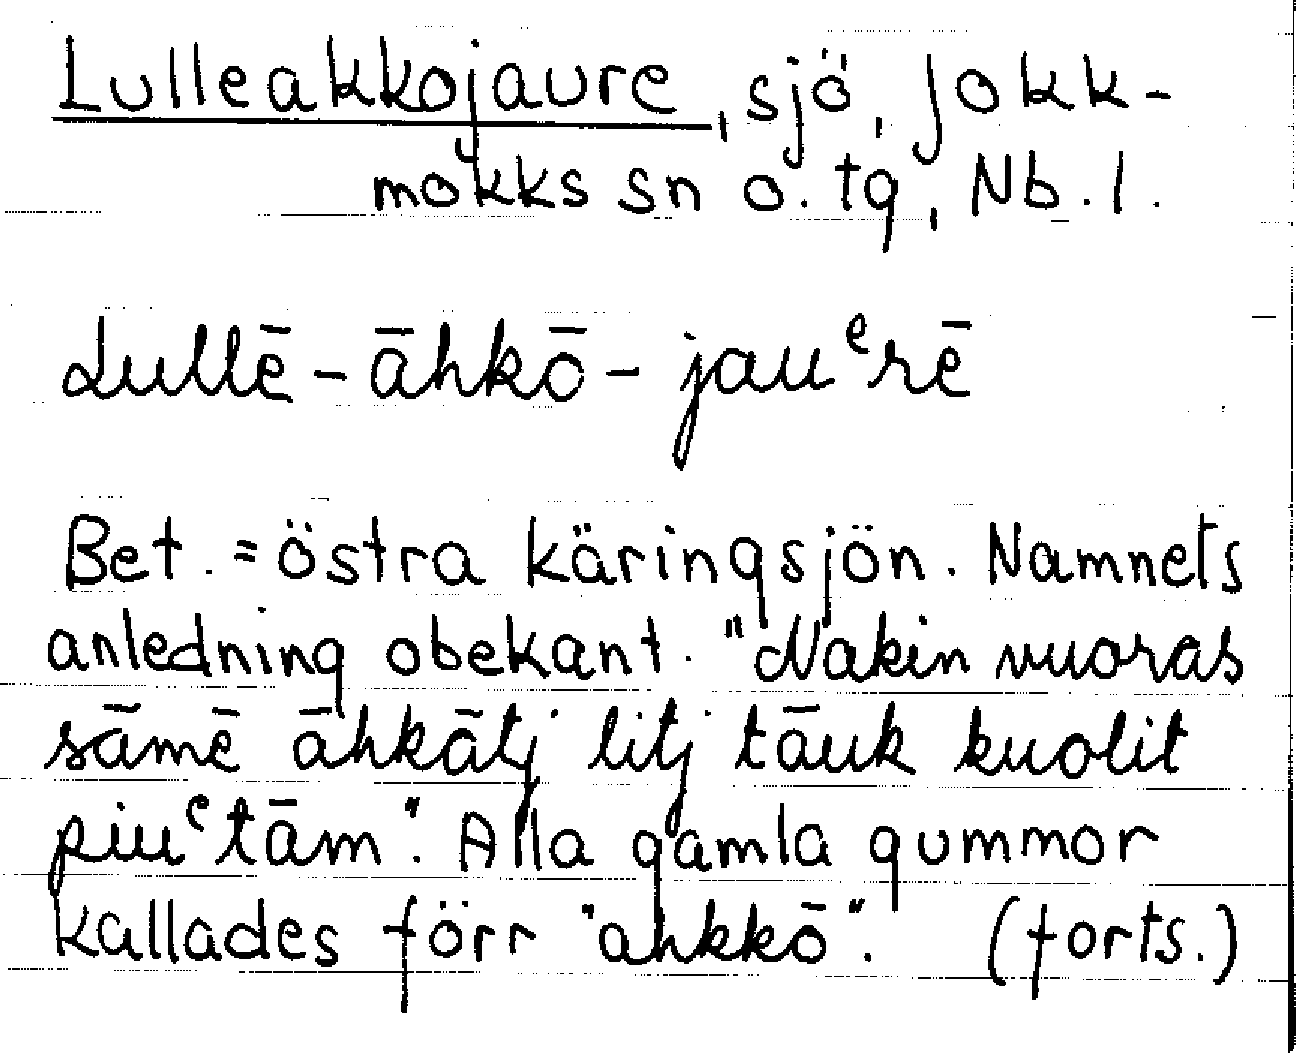 Lulleakkojaure, sjö, Jokk-
mokks sn o. tg, Nb. l.
Lullē-āhkō-jauᵉrē
Bet. = östra käringsjön. Namnets
anledning obekant. "Nakin vuoras
sāmē āhkātj litj tāuk kuolit
piuᵉtām". Alla gamla gummor
kallades förr "ahkkō". (forts.)